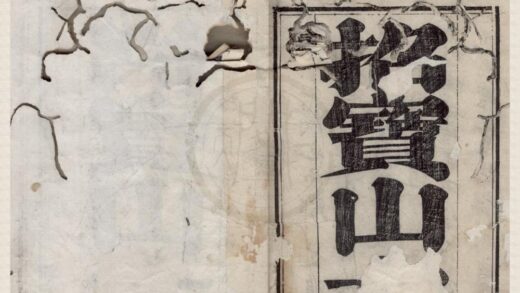 招寶山